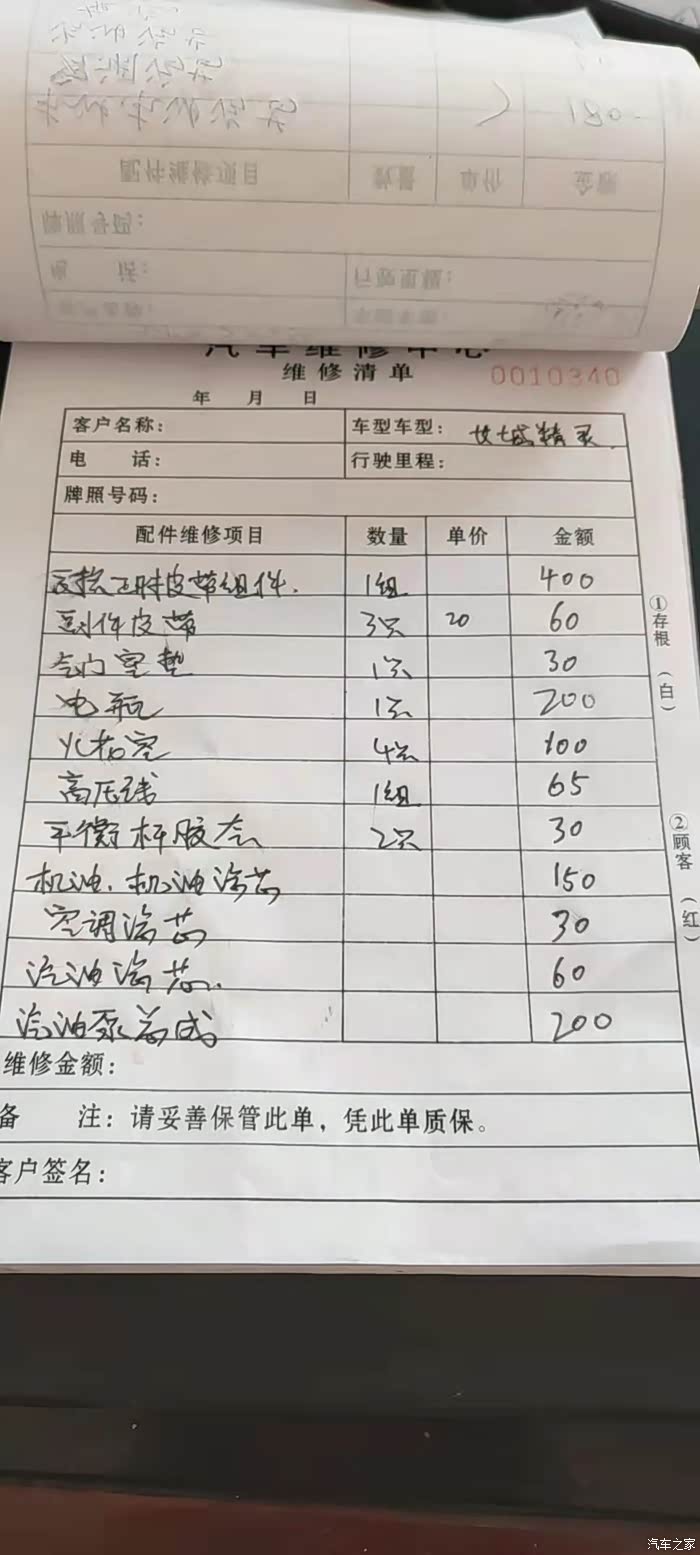 180
配件维修项目 数量 单价 金额
牌照号码：
电 话： 行驶里程：
汽车维修中心
维修清单 0010340
年 月 日
客户名称： 车型车型： 精灵
电 话： 行驶里程：
牌照号码：
配件维修项目 数量 单价 金额
正时皮带组件. 1组 400
皮带 3只 20 60
气门室垫 1只 30
电瓶 1只 200
火花塞 4只 100
高压线 1组 65
平衡杆胶套 2只 30
机油.机油滤芯 150
空调滤芯 30
汽油滤芯. 60
汽油泵总成 200
维修金额：
备 注：请妥善保管此单，凭此单质保。
客户签名：
①存根（白）
②顾客（红）
汽车之家